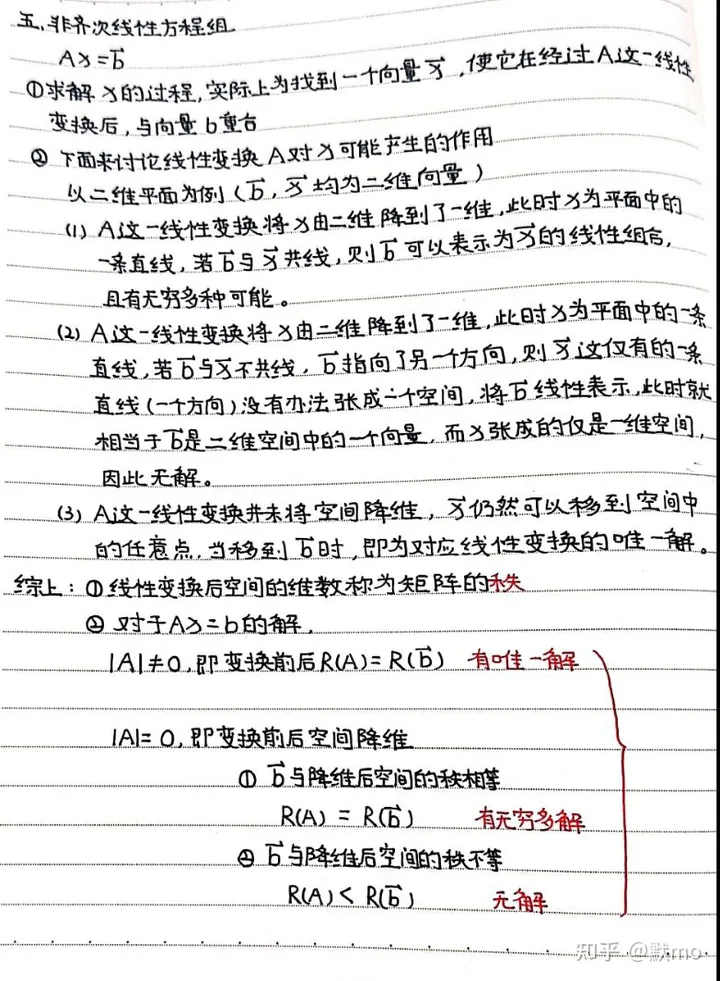 五、非齐次线性方程组
Ax=b⃗
①求解x的过程,实际上为找到一个向量x⃗,使它在经过A这一线性
变换后,与向量b重合
② 下面来讨论线性变换A对x可能产生的作用
以二维平面为例(b⃗,x⃗均为二维向量)
(1) A这一线性变换将x由二维降到了一维,此时x为平面中的
一条直线,若b⃗与x⃗共线,则b⃗可以表示为x⃗的线性组合,
且有无穷多种可能。
(2) A这一线性变换将x由二维降到了一维,此时x为平面中的一条
直线,若b⃗与x⃗不共线,b⃗指向了另一个方向,则x⃗这仅有的一条
直线(一个方向)没有办法张成一个空间,将b⃗线性表示,此时就
相当于b⃗是二维空间中的一个向量,而x张成的仅是一维空间,
因此无解。
(3) A这一线性变换并未将空间降维,x⃗仍然可以移到空间中
的任意点,当移到b⃗时,即为对应线性变换的唯一解。
综上:①线性变换后空间的维数称为矩阵的秩
② 对于Ax=b的解,
|A|≠0,即变换前后R(A)=R(b⃗) 有唯一解
|A|=0,即变换前后空间降维
① b⃗与降维后空间的秩相等
R(A)=R(b⃗) 有无穷多解
② b⃗与降维后空间的秩不等
R(A)<R(b⃗) 无解
知乎 @默mo